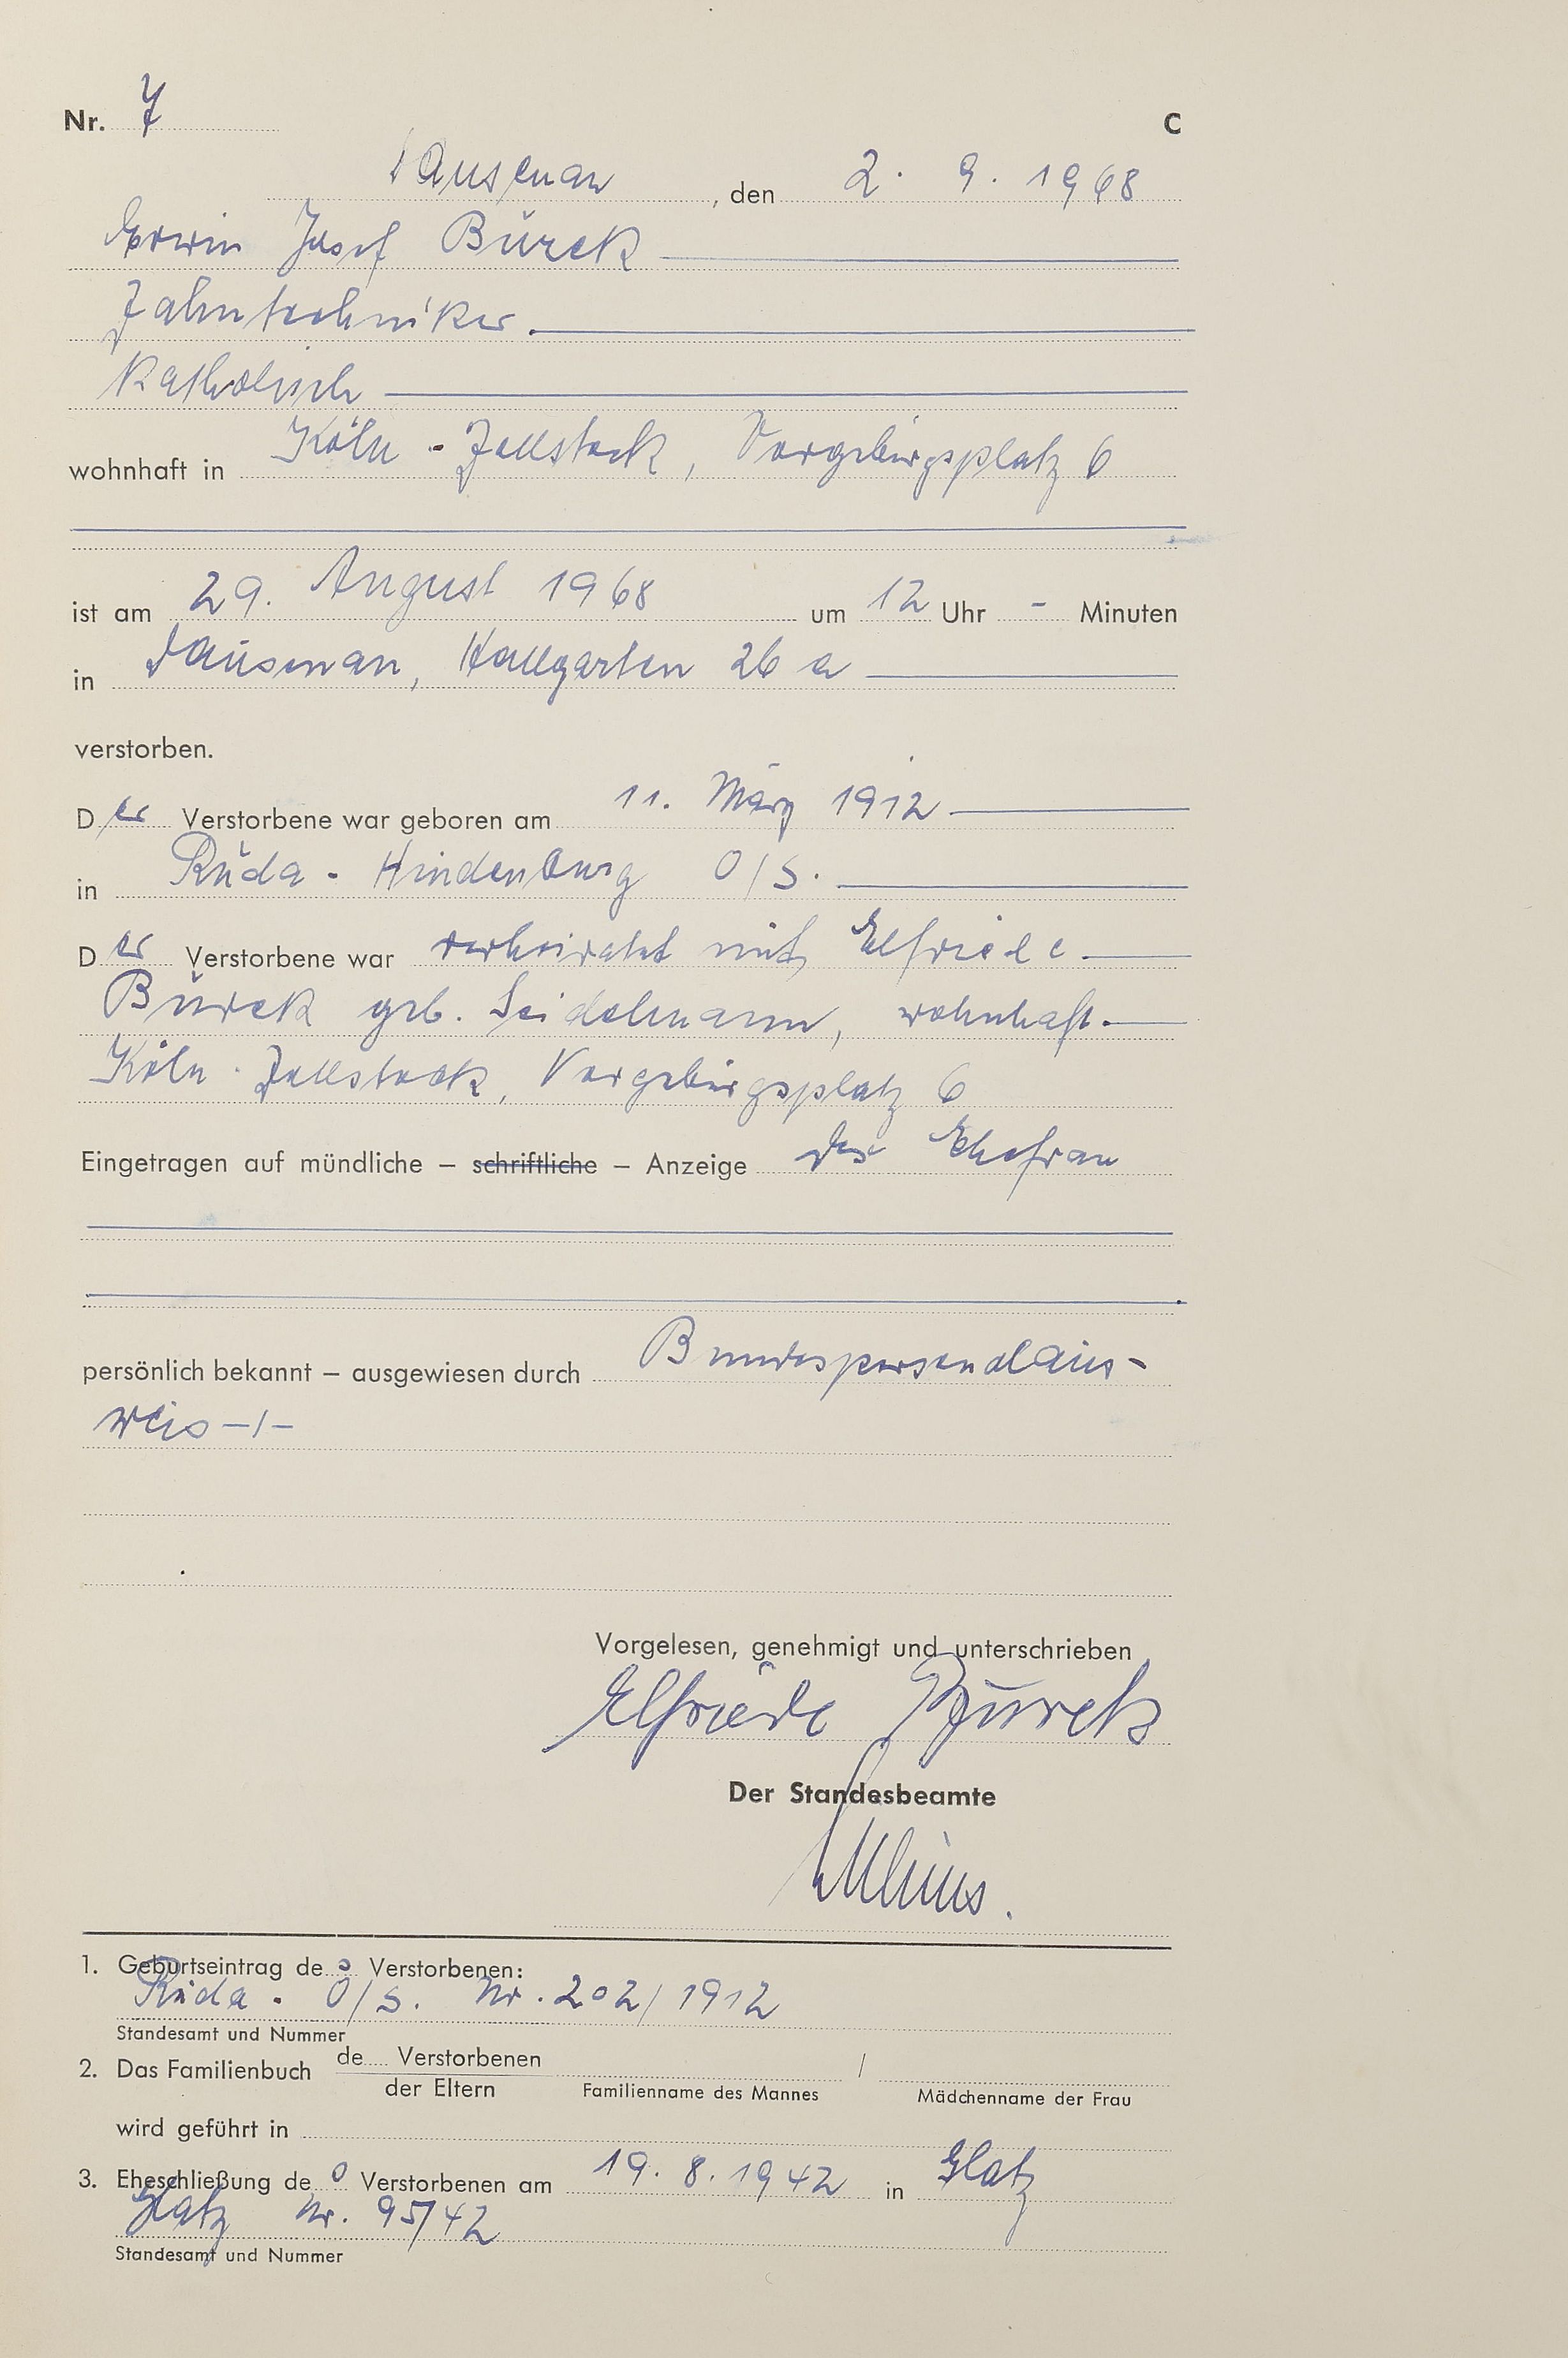 Nr. 7 C
Dausenau, den 2. 9. 1968
Erwin Josef Burek
Zahntechniker.
Katholisch
wohnhaft in Köln - Zollstock, Vorgebirgsplatz 6
ist am 29. August 1968 um 12 Uhr - Minuten
in Dausenau, Hallgarten 26 a
verstorben.
Der Verstorbene war geboren am 11. März 1912
in Ruda - Hindenburg O/S.
Der Verstorbene war verheiratet mit Elfriede
Burek geb. Seidelmann, wohnhaft
Köln - Zollstock, Vorgebirgsplatz 6
Eingetragen auf mündliche – schriftliche – Anzeige der Ehefrau
persönlich bekannt – ausgewiesen durch Bundespersonalaus-
weis -/-
Vorgelesen, genehmigt und unterschrieben
Elfriede Burek
Der Standesbeamte
1. Geburtseintrag des Verstorbenen:
Ruda - O/S. Nr. 202/1912
Standesamt und Nummer
2. Das Familienbuch de Verstorbenen /
der Eltern Familienname des Mannes Mädchenname der Frau
wird geführt in
3. Eheschließung des Verstorbenen am 19. 8. 1942 in Glatz
Glatz Nr. 95/42
Standesamt und Nummer